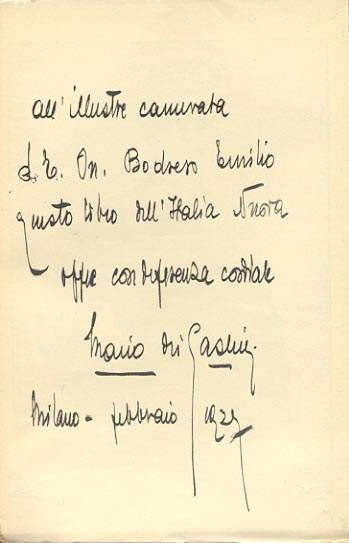 all'illustre camerata
S. E. On. Bodrero Emilio
questo libro dell'Italia Nuova
offre con deferenza cordiale
Mario dei
Milano - febbraio